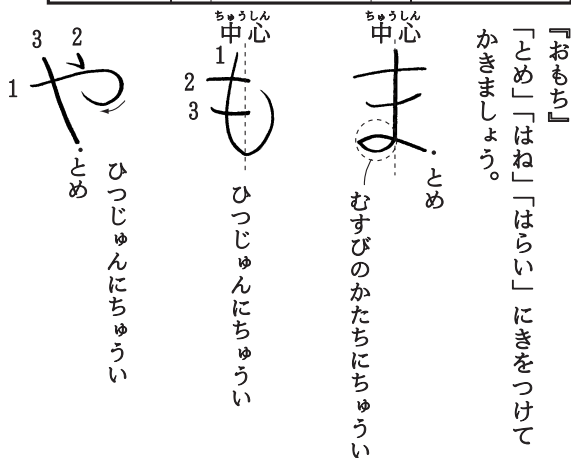 『おもち』
「とめ」「はね」「はらい」にきをつけて
かきましょう。
ちゅうしん
中心
ま
とめ
むすびのかたちにちゅうい
ちゅうしん
中心
も
1
2
3
ひつじゅんにちゅうい
や
1
2
3
とめ
ひつじゅんにちゅうい